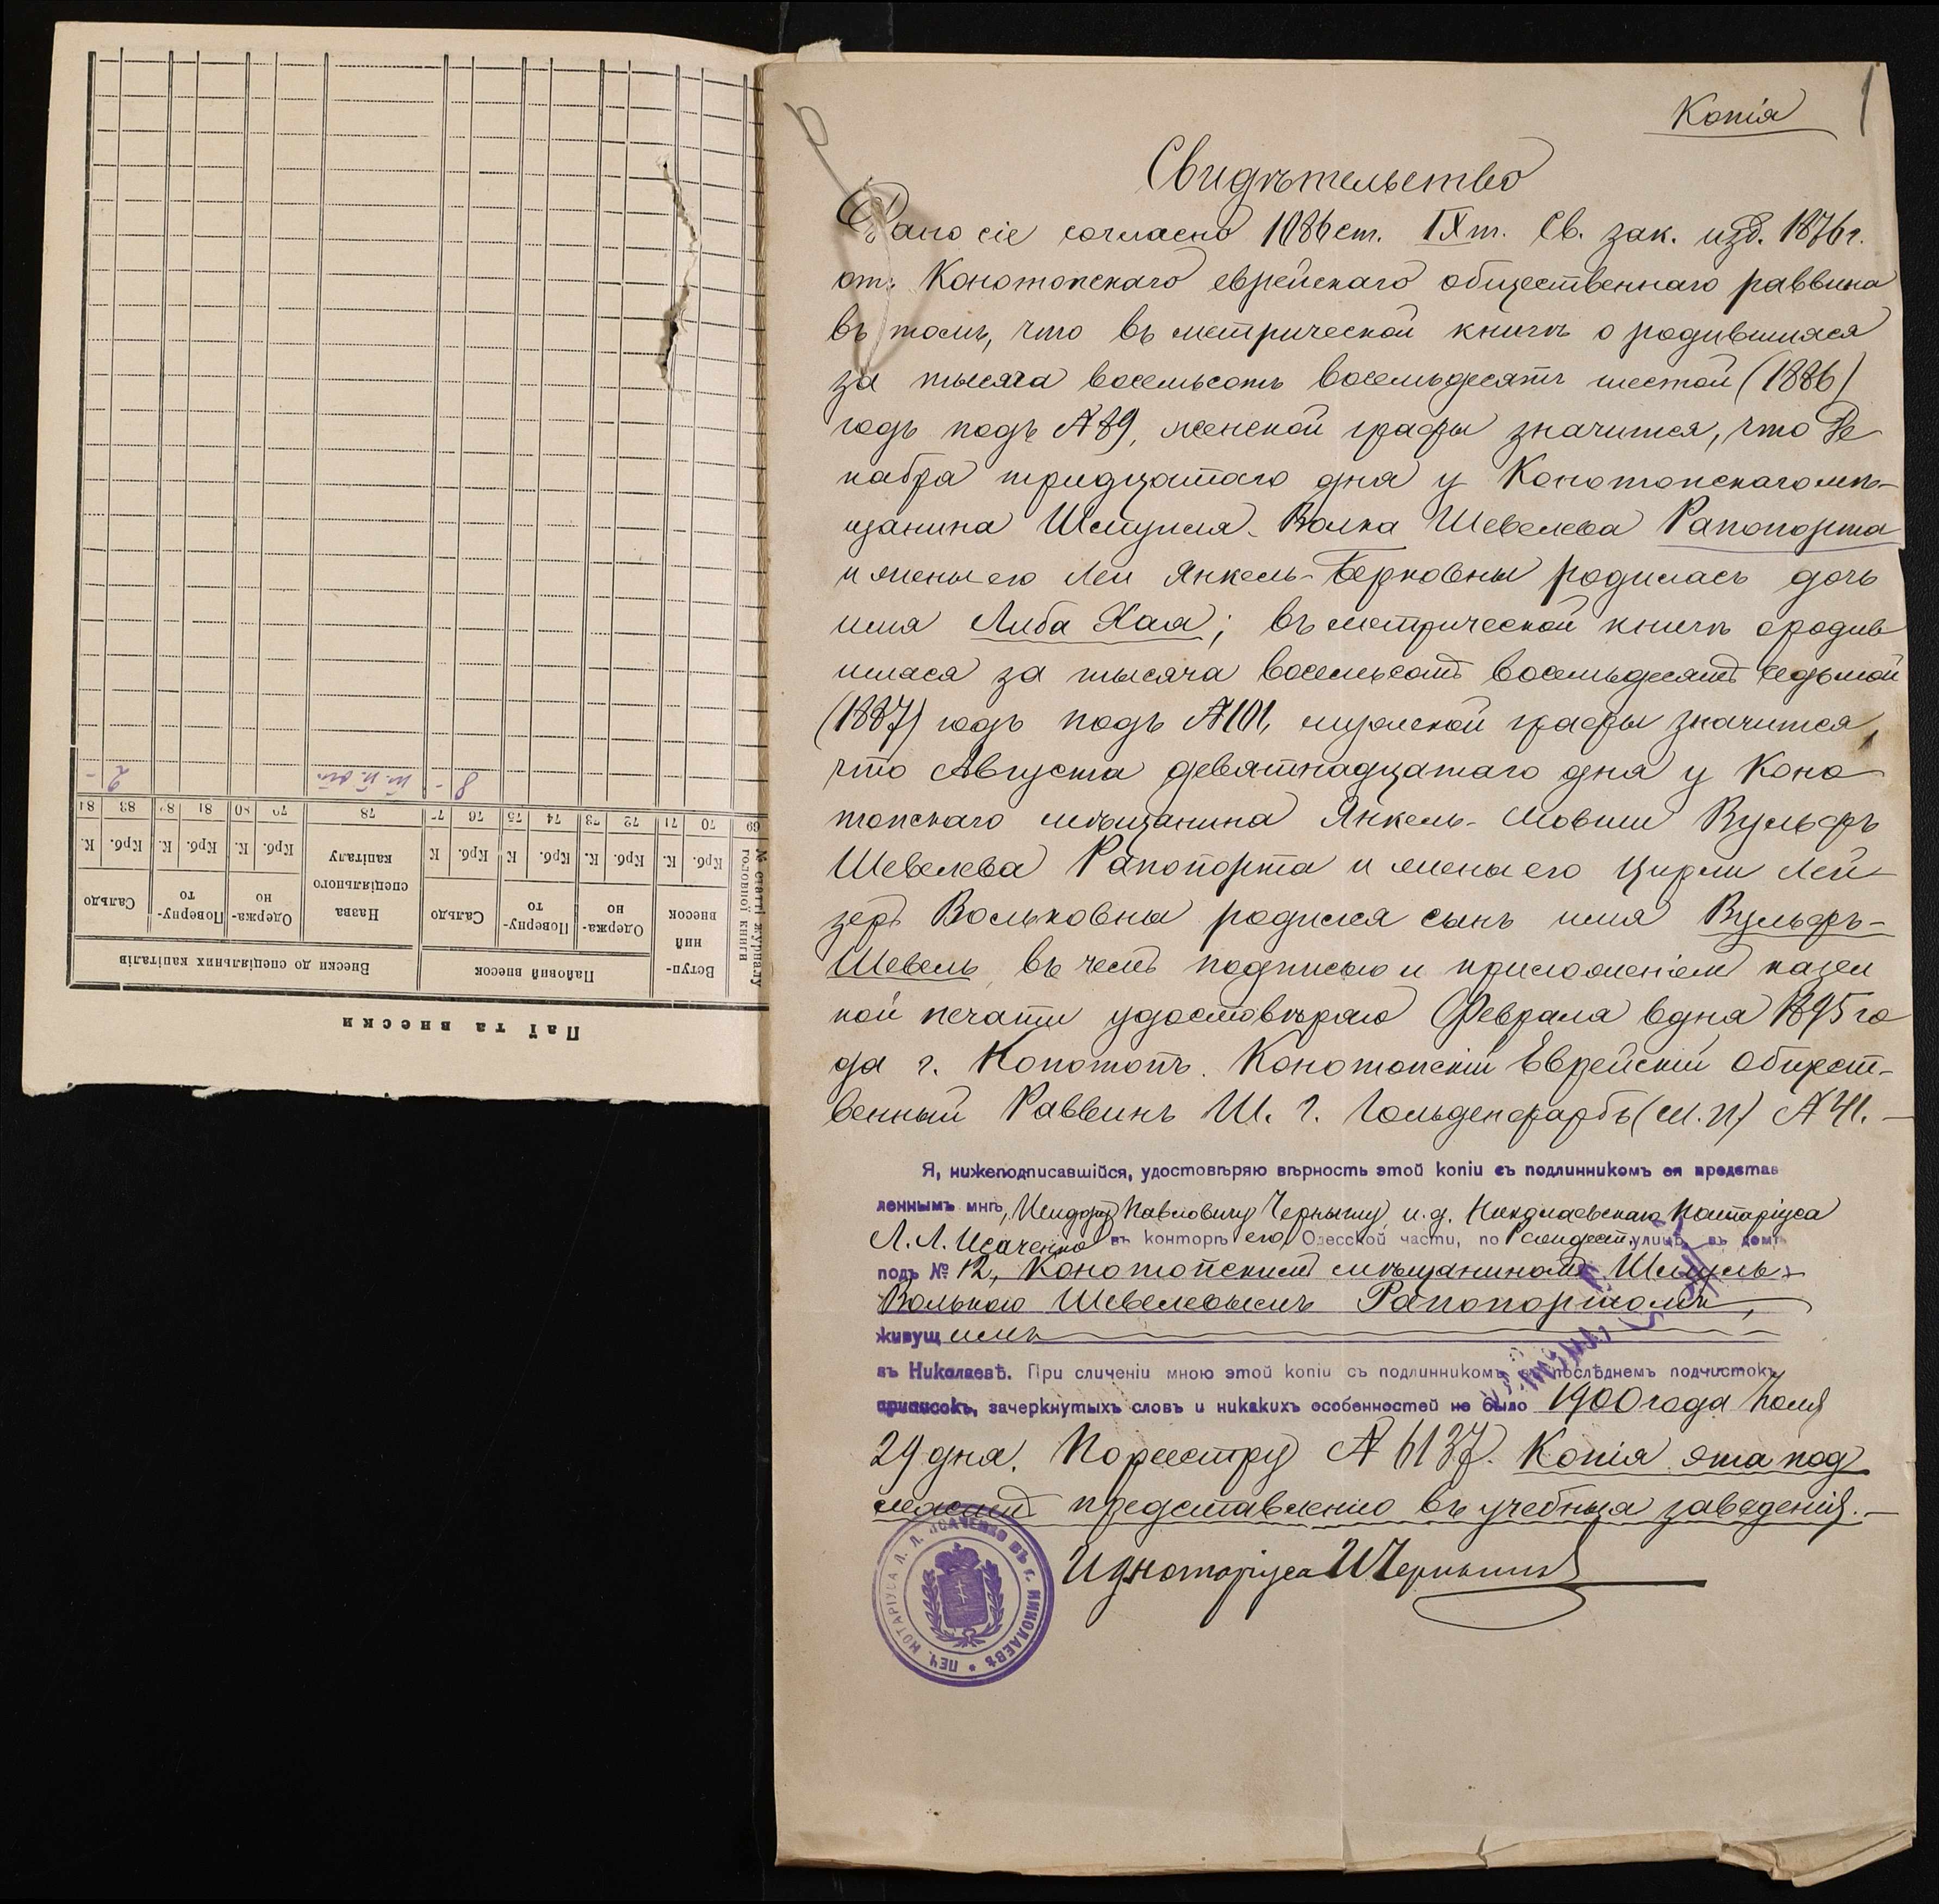 Паї та внески
Вступний внесок
Пайовий внесок
Внески до спеціяльних капіталів
№ статті журналу головної книги
Одержано
Повернуто
Сальдо
Назва спеціяльного капіталу
Одержано
Повернуто
Сальдо
Крб. К. Крб. К. Крб. К Крб. К Крб. К. Крб. К. Крб. К.
69 70 71 72 73 74 75 76 77 78 79 80 81 82 83 84
8 -
2 -
Копія
1
Свидѣтельство
Дано сіе согласно 1086 ст. IX т. Св. зак. изд. 1876 г.
от: Конотопскаго еврейскаго общественнаго раввина
въ томъ, что въ метрической книгѣ о родившихся
за тысяча восемьсотъ восемьдесятъ шестой (1886)
годъ подъ № 89, женской графы значится, что Де
кабря тридцатаго дня у Конотопскаго мѣ-
щанина Шмуиля-Волка Шевелева Рапопорта
и жены его Леи Янкель-Берковны родилась дочь
имя Либа Хая; въ метрической книгѣ о родив
шихся за тысяча восемьсотъ восемьдесятъ седьмой
(1887) годъ подъ № 101, мужской графы значится,
что Августа девятнадцатаго дня у Коно
топскаго мѣщанина Янкель-Мовши Вульфъ
Шевелева Рапопорта и жены его Цирли Лей
зеръ Вольковны родился сынъ имя Вульфъ-
Шевель, въ чемъ подписью и приложеніемъ казен
ной печати удостовѣряю Февраля 8 дня 1895 го
да г. Конотопъ. Конотопскій Еврейскій Общест-
венный Раввинъ Ш. Г. Гольденфарбъ (М.П.) № 41.
Я, нижеподписавшійся, удостовѣряю вѣрность этой копіи съ подлинникомъ ея представ
леннымъ мнѣ, Исидору Павловичу Чернышу, и.д. Николаевскаго Нотаріуса
Л. Л. Исаченко въ конторѣ его, Одесской части, по улицѣ, въ домѣ
подъ № 12, Конотопскимъ мѣщаниномъ Шмуль-
Волькою Шевелевымъ Рапопортомъ,
живущимъ
въ Николаевѣ. При сличеніи мною этой копіи съ подлинникомъ въ послѣднемъ подчистокъ,
приписокъ, зачеркнутыхъ словъ и никакихъ особенностей не было 1900 года Іюля
29 дня. По реестру № 6137. Копія эта под
лежитъ представленію въ учебныя заведенія.
И д нотаріуса И Чернышъ
ПЕЧ. НОТАРІУСА Л. Л. ИСАЧЕНКО ВЪ Г. НИКОЛАЕВѢ